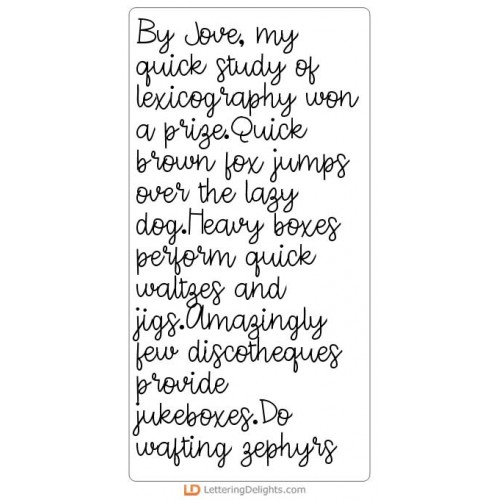 By Jove, my
quick study of
lexicography won
a prize.Quick
brown fox jumps
over the lazy
dog.Heavy boxes
perform quick
waltzes and
jigs.Amazingly
few discotheques
provide
jukeboxes.Do
wafting zephyrs
LD LetteringDelights.com